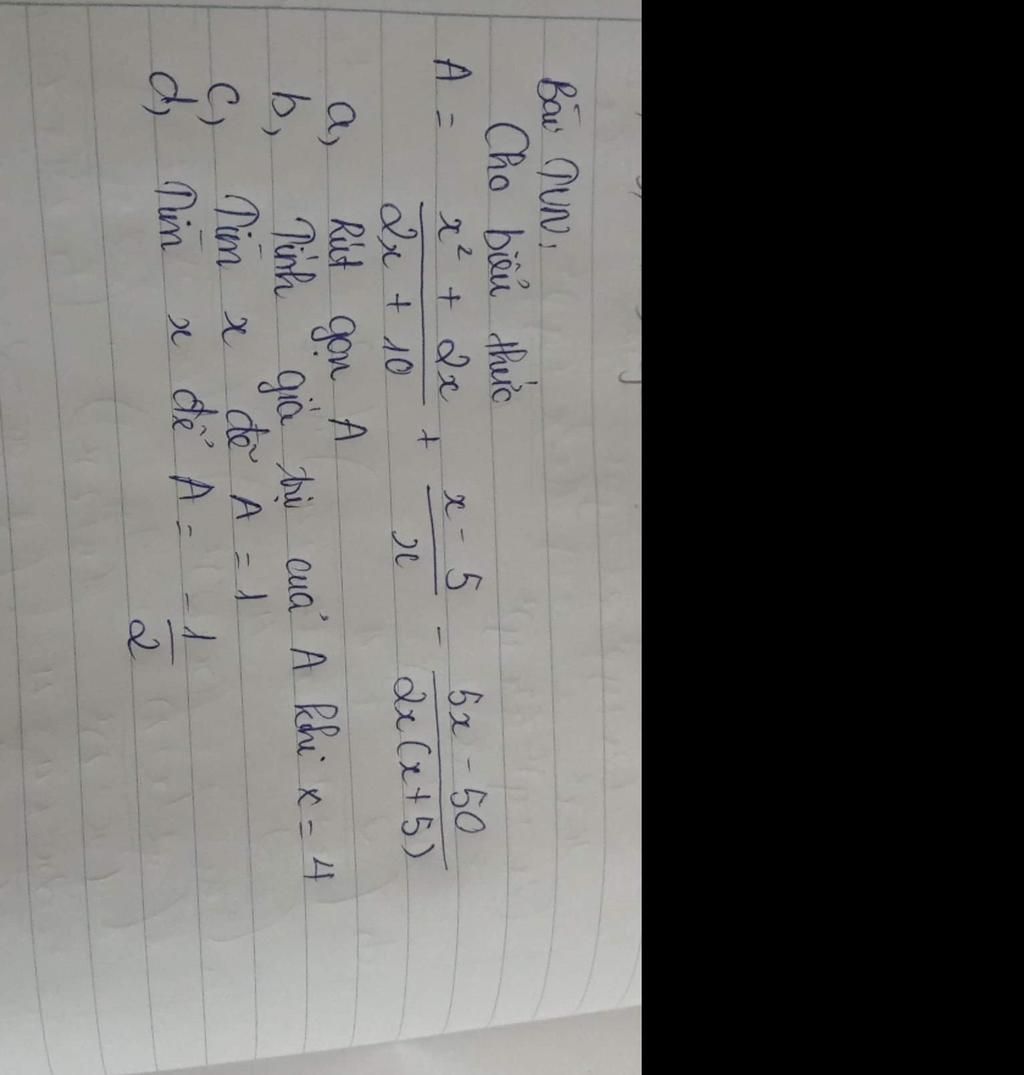 Bài TVN:
Cho biểu thức
A = \frac{x² + 2x}{2x + 10} + \frac{x - 5}{x} - \frac{5x - 50}{2x(x + 5)}
a, Rút gọn A
b, Tính giá trị của A khi x = 4
c, Tìm x để A = 1
d, Tìm x để A = \frac{-1}{2}